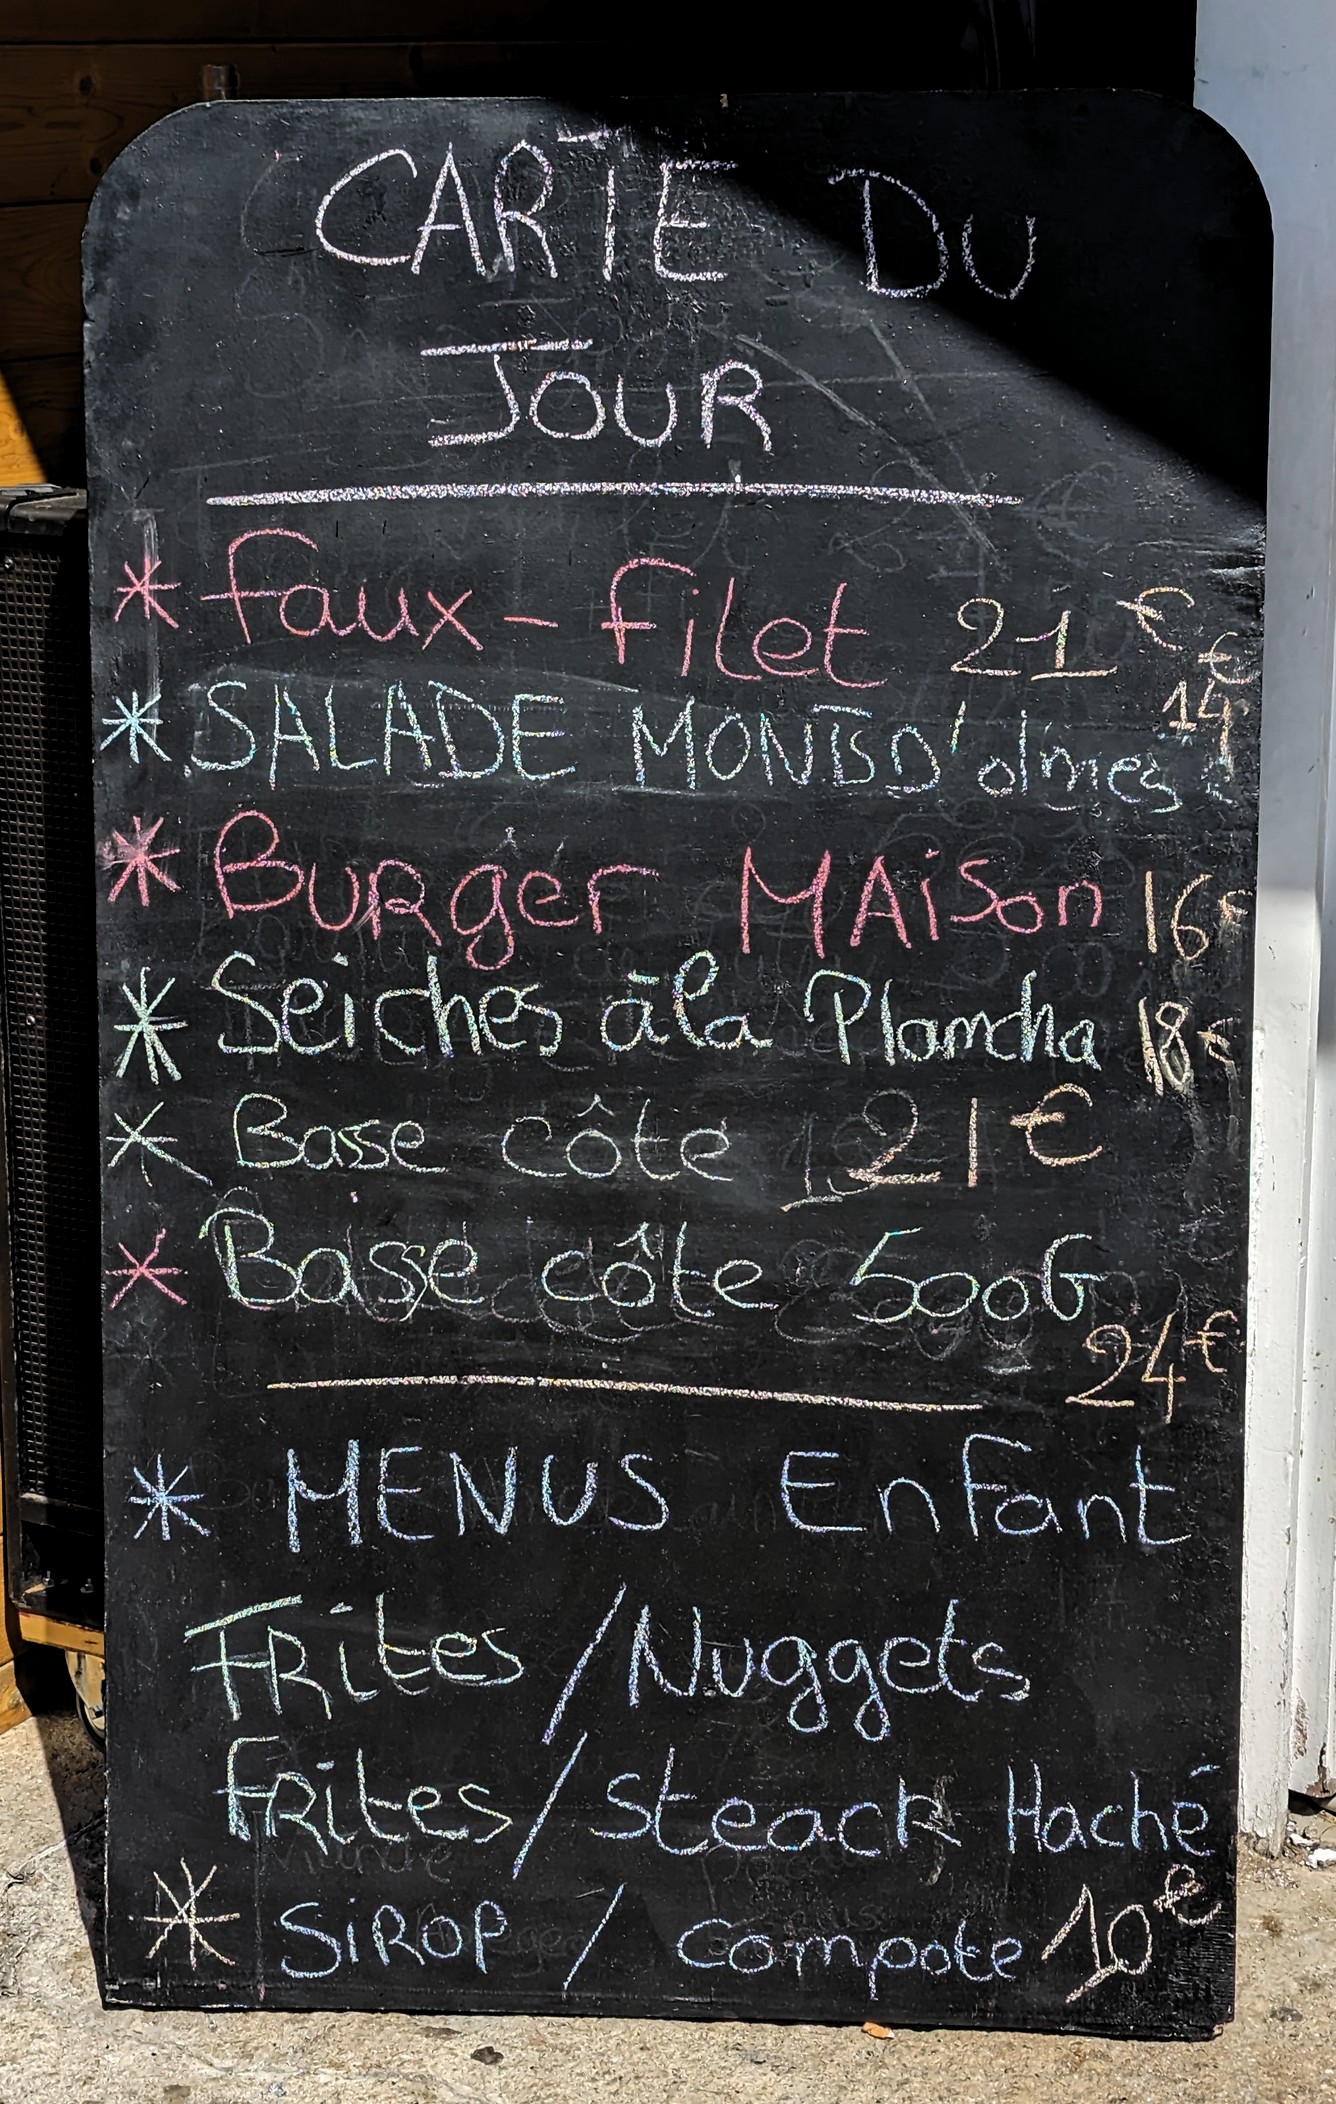 CARTE DU
JOUR
* Faux-Filet 21€
* SALADE MONTSD'olmes 14€
* BURger MAiSon 16€
* Seiches à la Plancha 18€
* Basse côte 21€
* Basse côte 500G
24€
* MENUS Enfant
FRites / Nuggets
FRites / Steack Haché
* SiROP / compote 10€